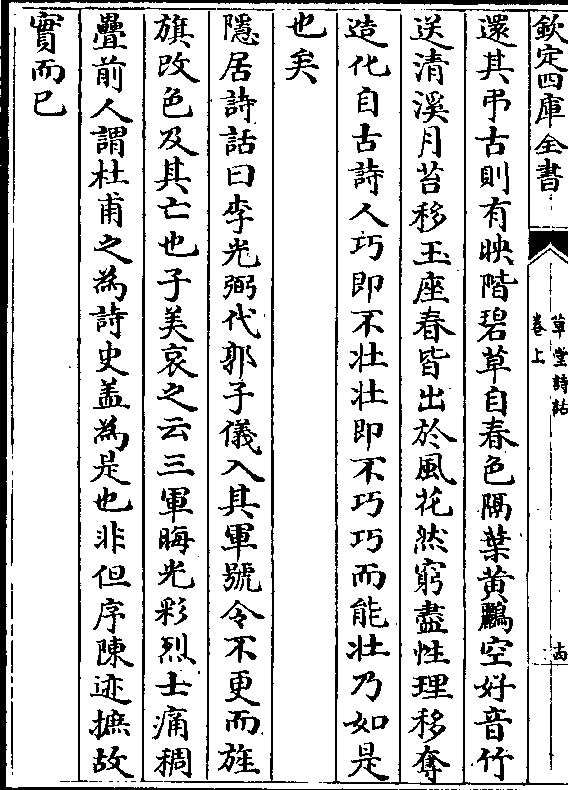 欽定四庫全書
草堂詩話
卷上
十四
還其弔古則有映階碧草自春色隔葉黃鸝空好音竹
送清溪月苔移玉座春皆出於風花然窮盡性理移奪
造化自古詩人巧即不壯壯即不巧巧而能壯乃如是
也矣
隱居詩話曰李光弼代郭子儀入其軍號令不更而旌
旗改色及其亡也子美哀之云三軍晦光彩烈士痛稠
疊前人謂杜甫之為詩史葢為是也非但序陳迹摭故
實而已